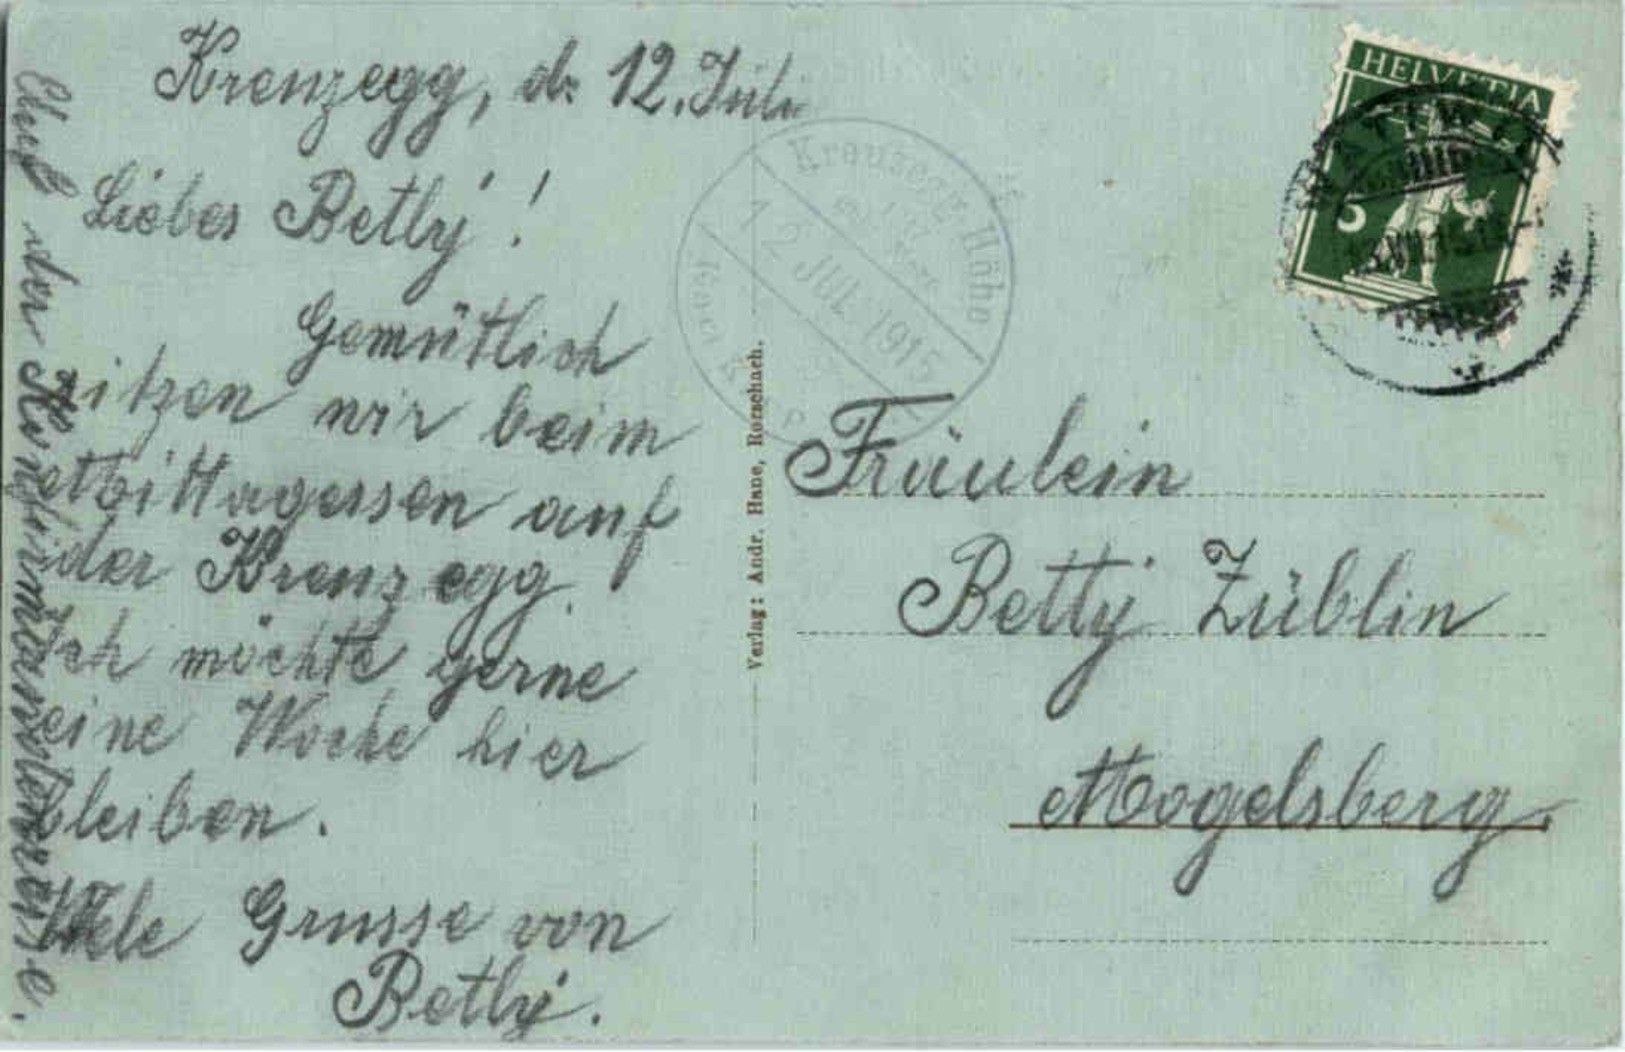 Kreuzegg, d. 12. Juli
Liebes Betly!
Gemütlich
sitzen wir beim
Mittagessen auf
der Kreuzegg.
Ich möchte gerne
eine Woche hier
bleiben.
Viele Grusse von
Betly.
der Konfirmanden
Kreuzegg-Höhe
12 JUL 1915
Verlag: Andr. Hane, Rorschach.
HELVETIA
5
WATTWIL
Fräulein
Betty Züblin
Mogelsberg.